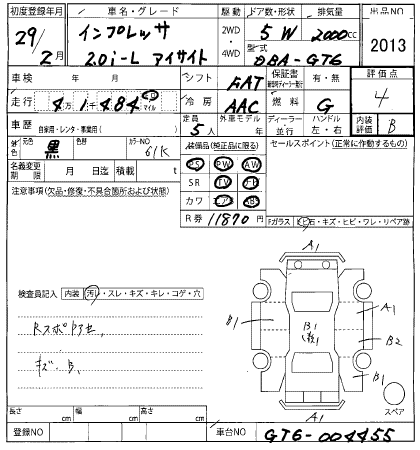 初度登録年月 車名・グレード 駆動 ドア数・形状 排気量 出品NO
29/2月 インプレッサ 2.0i-L アイサイト 2WD・4WD 5W 2000cc 2013
型式 DBA-GT6
車検 年 月 シフト FAT 保証書 有・無 評価点
走行 4万1千484 km マイル 冷房 AAC 燃料 G 4
車歴 自家用・レンタ・事業用( ) 定員 5人 外車モデル 年 ディーラー・並行 ハンドル 左・右 内装評価 B
色 元色 黒 色替 カラーNO 61K 装備品(純正品に限る) セールスポイント(正常に作動するもの)
名義変更期限 月 日迄 積載 t PS PW AW
SR TV ナビ
注意事項(欠品・修復・不具合箇所および状態) カワ エアB ABS
R券 11870円
Fガラス ヒビ・石・キズ・ヒビ・ワレ・リペア跡
A1
検査員記入 内装 汚レ・スレ・キズ・キレ・コゲ・穴
A1
B1 B1 B2
Rスポ
キズ.B.
B1
スペア
A1
長さ cm 幅 cm 高さ cm
登録NO 車台NO GT6-004455